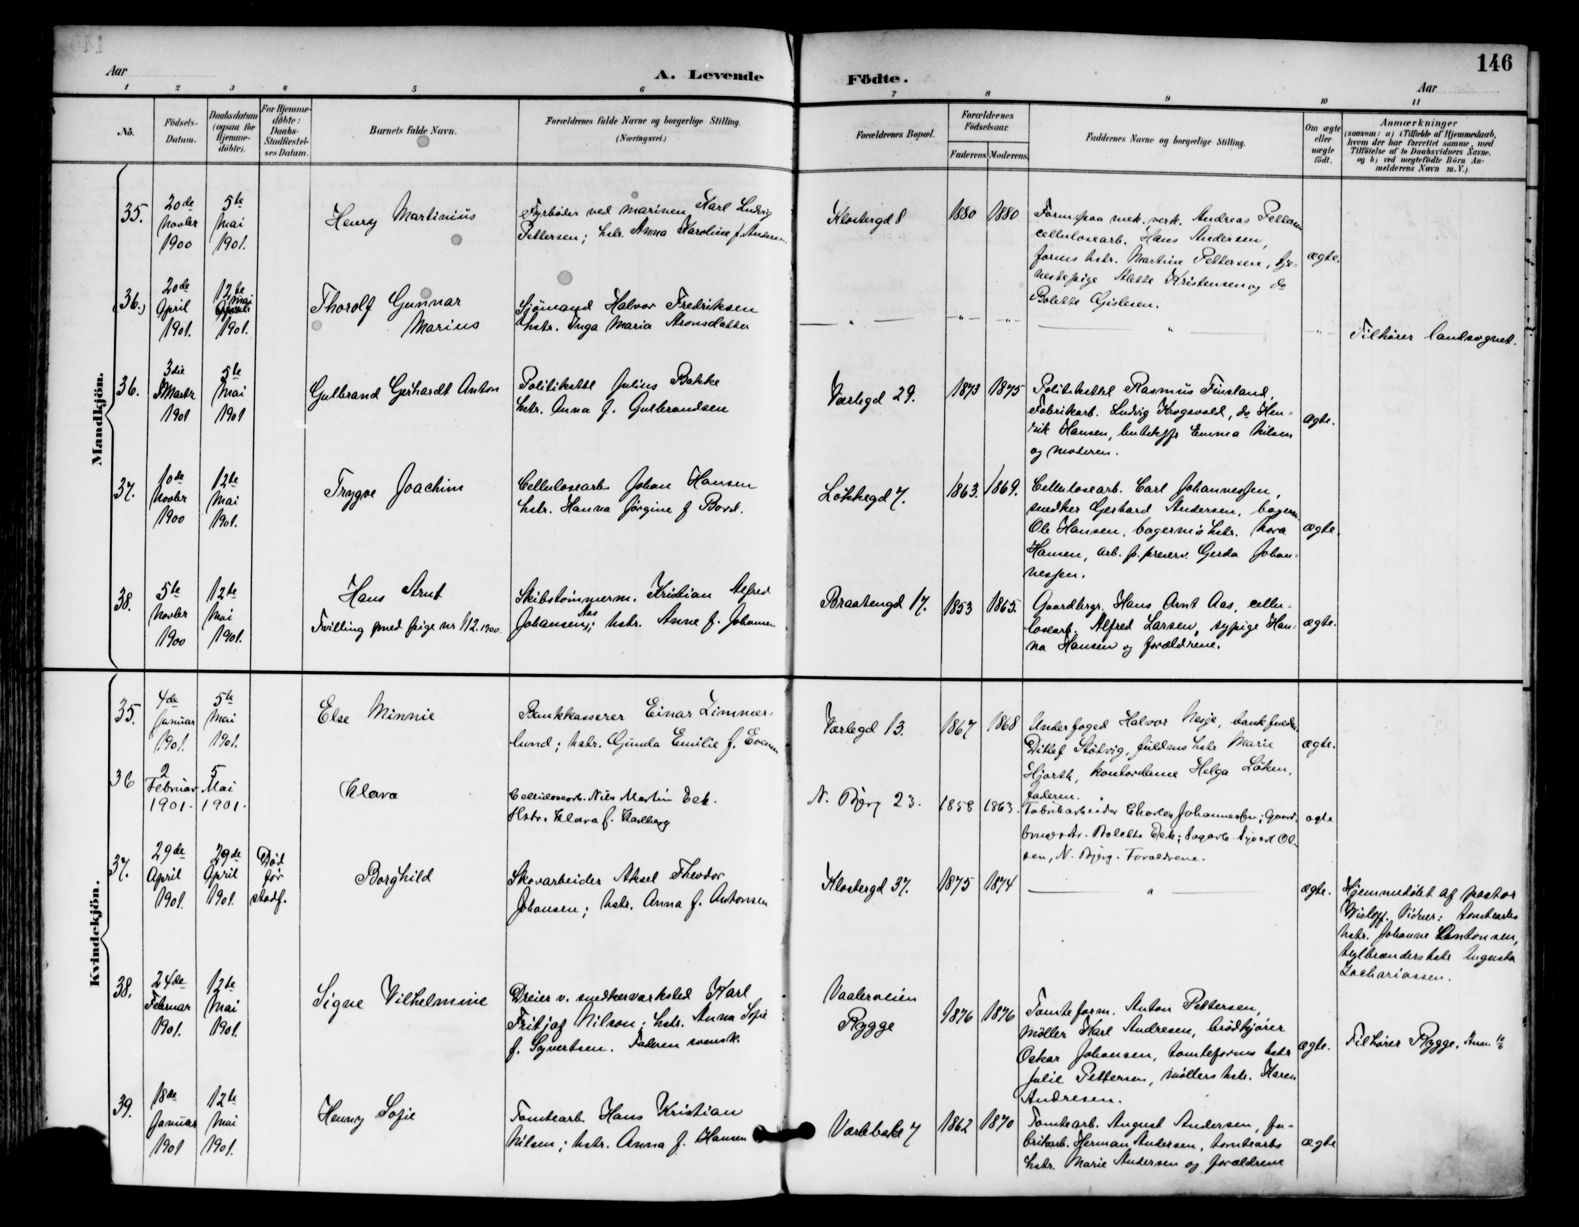 146
Aar
A. Levende Födte.
Aar
1 2 3 4 5 6 7 8 9 10 11
No.
Födsels-
Datum.
Daabsdatum
(ogsaa for
Hjemme-
döbte).
For Hjemme-
döbte:
Daabs-
Stadfæstel-
ses Datum.
Barnets fulde Navn.
Forældrenes fulde Navne og borgerlige Stilling.
(Næringsvei.)
Forældrenes Bopæl.
Forældrenes
Födselsaar.
Faderens. Moderens.
Faddernes Navne og borgerlige Stilling.
Om ægte
eller
uægte
födt.
Anmærkninger
(saasom: a) i Tilfælde af Hjemmedaab,
hvem der har forrettet samme, med
Tilföielse af to Daabsvidners Navne.
og b) ved uægtefödte Börn An-
melderens Navn m.V.)
Mandkjön.
35.
20de
Novbr
1900
5te
Mai
1901.
Henry Martinius
Fyrböter ved marinen Karl Ludvig
Pettersen; hstr. Anna Karoline f. Andersen
Klostergd 8
1880
1880
Form. paa mek. verk. Andreas Pettersen
cellulosearb. Hans Andersen,
forms hstr. Martine Pettersen, tje-
nestepige Alette Kristensen og do
Bolette Gislesen.
ægte.
(36.)
20de
April
1901.
12te
Mai
1901.
Thorolf Gunnar
Marius
Sjömand Halvor Fredriksen
hstr. Inga Maria Aronsdatter
— " —
— " —
— " —
"
Tilhörer landsognet.
36.
3die
Marts
1901
5te
Mai
1901
Gulbrand Gerhardt Anton
Politikstbl Julius Bakke
hstr. Anna f. Gulbrandsen
Værlegd 29.
1873
1875
Politikstbl Rasmus Finsland,
Fabrikarb. Ludvig Krogsvold, do Hen-
rik Hansen, Emma Nilsen
og moderen.
ægte.
37.
10de
Novbr
1900
12te
Mai
1901.
Trygve Joachim
Cellulosearb. Johan Hansen
hstr. Hanna Jörgine f Bord.
Lökkegd 7.
1863.
1869.
Cellulosearb. Carl Johannessen,
snedker Gerhard Andersen, bagersv.
Ole Hansen, bagersv's hstr. Nora
Hansen, arb. p. preserv. Gerda Johan-
nessen.
ægte.
38.
5te
Novbr
1900
12te
Mai
1901.
Hans Arnt
Tvilling med pige nr 112 1900.
Skibstömmerm. Kristian Alfred
Johansen Aas; hstr. Anne f. Johansen
Braatengd 17.
1853
1865.
Gaardbrgr. Hans Arnt Aas, cellu-
losearb. Alfred Larsen, sypige Han-
na Hansen og forældrene.
ægte.
Kvindekjön.
35.
4de
Januar
1901.
5te
Mai
1901.
Else Minnie
Bankkasserer Einar Zimmer-
lund; hstr. Gunda Emilie f. Evensen
Værlegd 13.
1867
1868
Underfoged Halvor Nesje, bankfuldm.
Ditlef Stötvig, fuldms hstr Marie
Hjorth, kontordame Helga Löken,
faderen.
ægte.
36
2
Februar
1901.
5
Mai
1901.
Klara
Cellulosearb. Nils Martin Eek.
Hstr. Klara f. Karlberg
N. Bjerg 23.
1858
1863.
Fabrikarbeider Charles Johannessen; Gaard-
brugerstr. Bolette Eek; Sagarb. Syvert Ol-
sen, N. Bjerg. Forældrene.
ægte
37.
29de
April
1901.
29de
April
1901.
Död
för
stadf.
Borghild
Skovarbeider Aksel Theodor
Johansen; hstr. Anna f. Antonsen
Klostergd 37.
1875
1874
— " —
ægte.
Hjemmedöbt af pastor
Wislöff. Vidner: tomtearbs
hstr. Johanne Antonsen,
teglbrænders hstr Augusta
Zachariassen.
38.
24de
Februar
1901.
12te
Mai
1901.
Signe Vilhelmine
Dreier v. snedkerværksted Karl
Fritjof Nilson; hstr. Anna Sofie
f. Syvertsen. Faderen svensk.
Vaalerveien
Rygge
1876
1876
Tomteform. Anton Pettersen,
möller Karl Andresen, brödkjörer
Oskar Johansen, tomteforms hstr
Julie Pettersen, möllers hstr. Karen
Andresen.
ægte.
Tilhörer Rygge.
39.
18de
Januar
1901
12te
Mai
1901.
Henny Sofie
Tomtearb. Hans Kristian
Nilsen; hstr. Anna f. Hansen
Værlebake 7
1862
1870
Tomtearb. August Andersen, fa-
brikarb. Herman Andersen, tomtearbs
hstr. Marie Andersen og forældrene
ægte